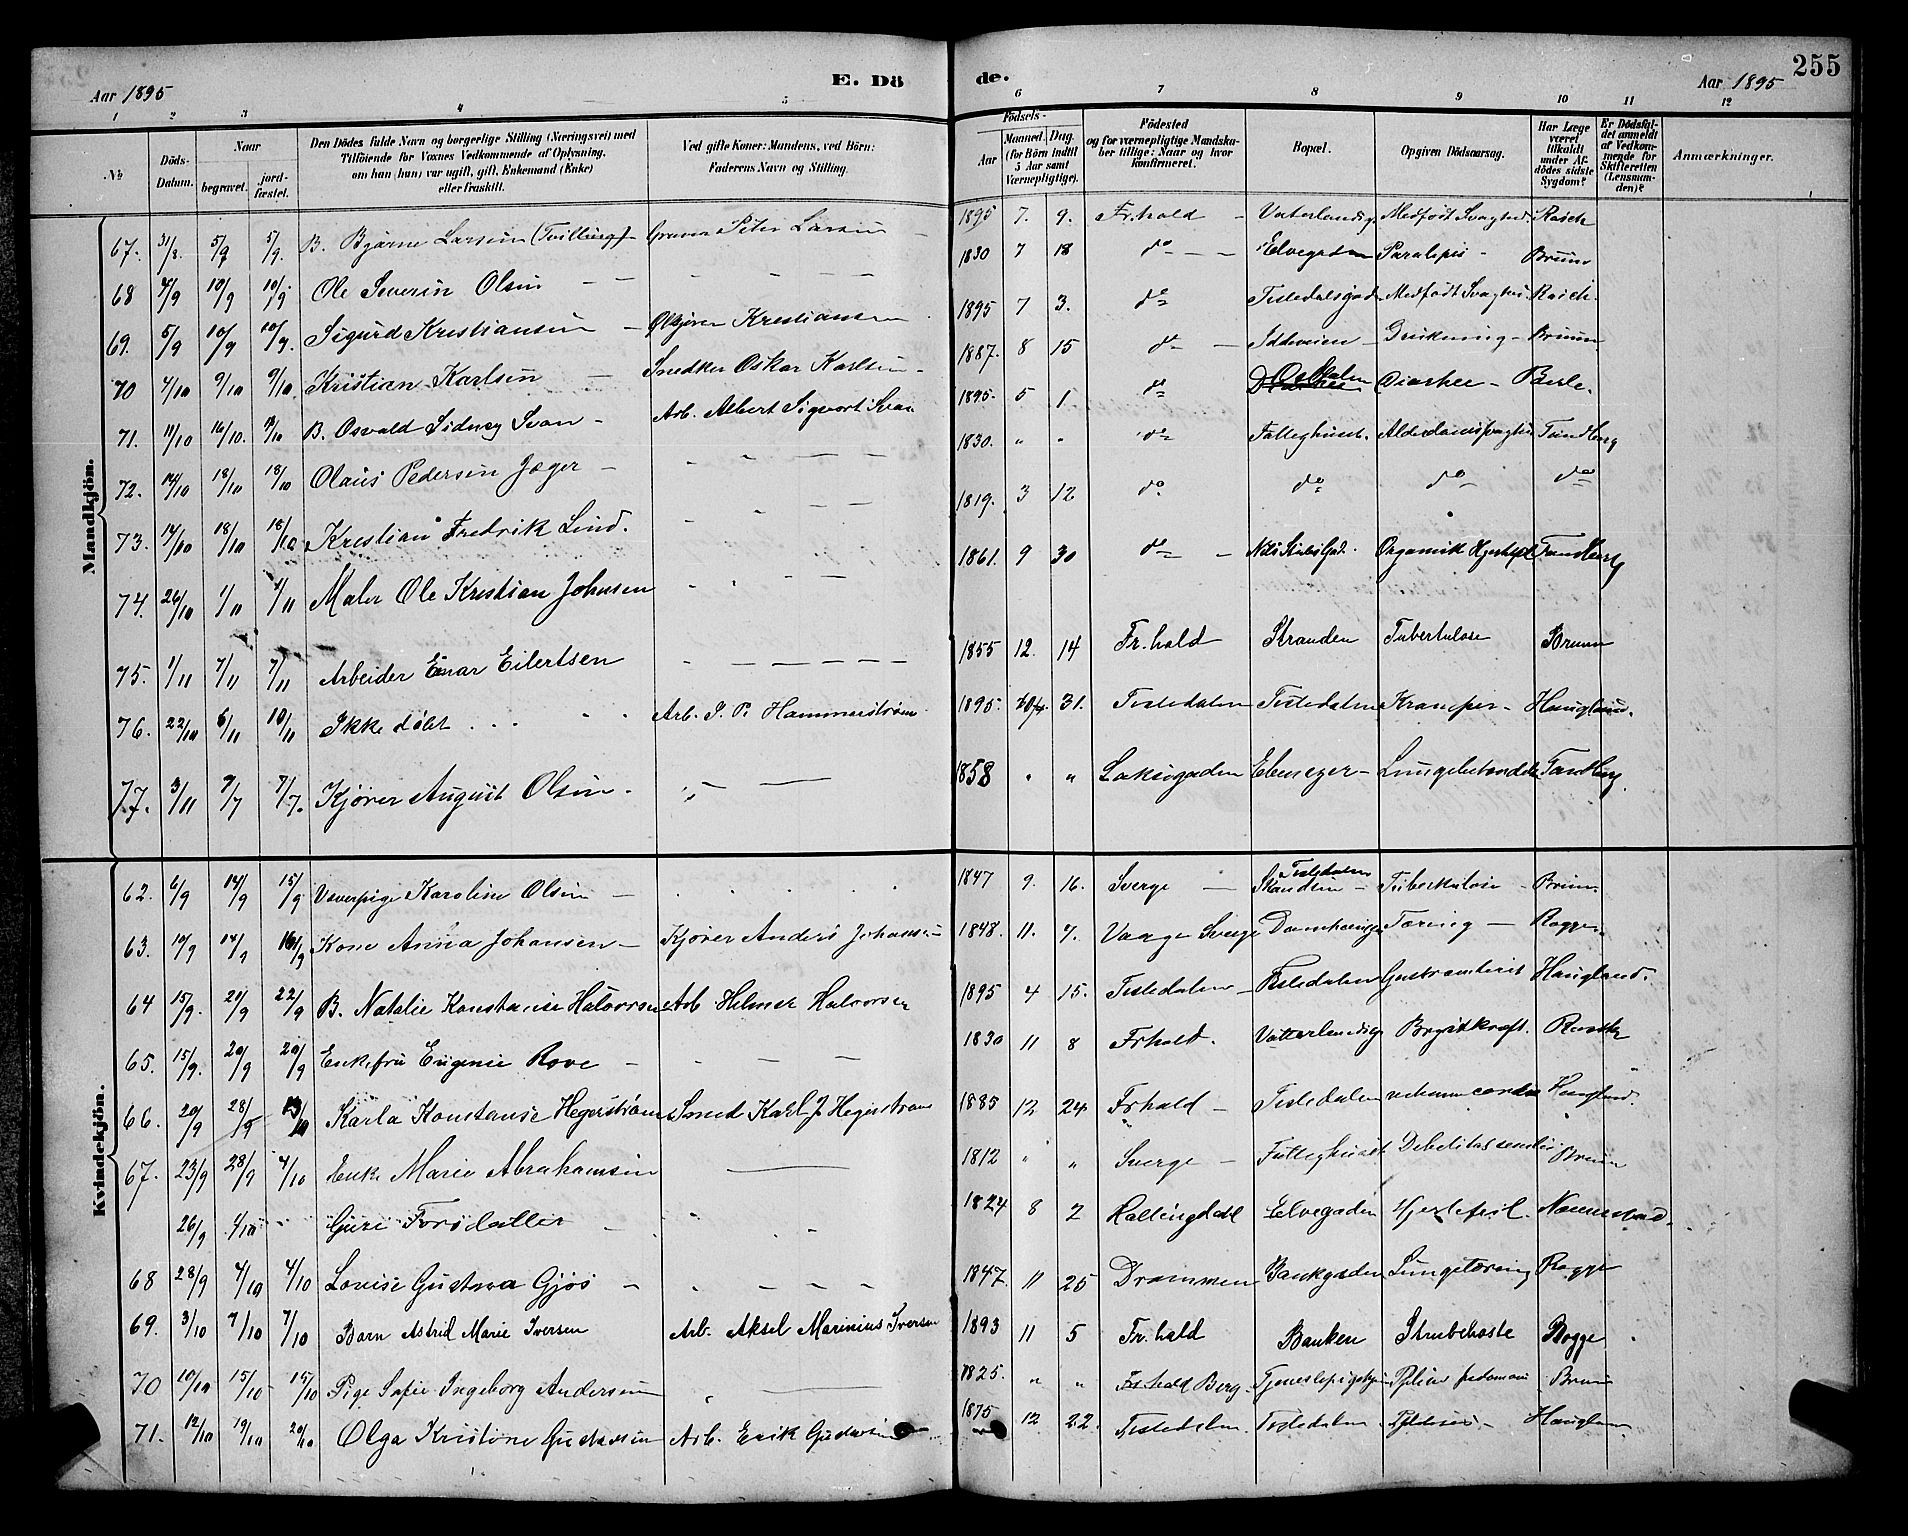 Aar 1895 E. Dö de. Aar 1895 255
1 2 3 4 5 6 7 8 9 10 11 12
№ Döds-Datum. Naar begravet. jord-fæstet. Den Dödes fulde Navn og borgerlige Stilling (Næringsvei) med Tilföiende for Voxnes Vedkommende af Oplysning, om han (hun) var ugift, gift, Enkemand (Enke) eller fraskilt. Ved gifte Koner: Mandens, ved Börn: Faderens Navn og Stilling. Födsels- Aar Maaned. Dag. (for Börn indtil 5 Aar samt Værnepligtige). Födested og for værnepligtige Mandskaber tillige: Naar og hvor konfirmeret. Bopæl. Opgiven Dödsaarsag. Har Læge været tilkaldt under Afdödes sidste Sygdom? Er Dödsfaldet anmeldt af Vedkommende for Skifteretten (Lensmanden)? Anmærkninger.
Mandkjön.
67. 31/8 5/9 5/9. B. Bjarne Larsen (Tvilling) Graver Peter Larsen 1895 7. 9. Fr.hald Vaterlandsg. Medfödt Svaghed Rasch
68 4/9 10/9 10/9 Ole Severin Olsen 1830 7 18 do Elvegaden Paralysis Bruun
69. 5/9 10/9 10/9. Sigurd Kristiansen Kristiansen 1895 7 3. do Tistedalsgad. Medfödt Svaghed Rasch.
70 4/10 9/10 9/10 Kristian Karlsen Snedker Oskar Karlsen 1887. 8 15 do Iddeveien Bruun
71. 11/10 16/10. B. Osvald Sidney Svan Arb. Albert Sigvort Svan 1895. 5 1 do Diarhee
72. 14/10 18/10 18/10 Olaus Pedersen Jæger 1830. " " do Fattighuset. Tandberg
73. 14/10 18/10 18/10 Kristian Fredrik Lind. 1819. 3 12 do. do do do
74. 26/10 1/11 1/11 Maler Ole Kristian Johnsen 1861. 9 30 do Organisk Hjertefeil Tandberg
75. 1/11 7/11 7/11 Arbeider Einar Eilertsen 1855 12. 14 Fr.hald Stranden Tuberkulose Bruun
76. 22/10 6/11 10/11 Ikke döbt Arb. J. P. Hammerström 1895. 31. Tistedalen Tistedalen Kramper Haugland.
77. 3/11 7/7 7/7. Kjörer August Olsen. 1858 " " Laksegaden Ebenezer Lungebetændelse Tandberg.
Kvindekjön.
62. 6/9 14/9 15/9 Væverpige Karoline Olsen 1847 9. 16. Sverge Tistedalen Tuberkulose Bruun
63. 10/9 14/9 Kone Anna Johansen Kjörer Anders Johansen 1848. 11. 7. Sverge Tæring Rogge
64 15/9. 21/9 22/9 B. Natalie Konstanse Halvorsen Arb Helmer Halvorsen 1895 4 15. Tistedalen Tistedalen Haugland.
65. 15/9. 20/9 20/9 Enkefru Eugenie Rove 1830 11 8 Frhald. Vatterlandsg Brystkræft.
66. 20/9 28/9 Karla Konstanse Hegerström Smed Karl J Hegerström 1885 12 24 Frhald Tistedalen Haugland.
67. 23/9 28/9 4/10 Enke Marie Abrahamsen 1812 " " Sverge Fattighuset Debilitas senilis Bruun
26/9 4/10 Guri Torsdatter 1824 8 2 Hallingdal Elvegaden Hjertefeil.
68 28/9 4/10 4/10 Lovise Gustava Gjös 1847. 11 25 Drammen Bankgaden Lungetæring Rogge
69. 3/10 7/10 7/10 Barn Astrid Marie Iversen Arb. Aksel Marinius Iversen 1893 11 5 Fr.hald Banken Strubehoste Rogge
70 10/10 15/10 15/10 Pige Sofie Ingeborg Andersen 1825. " " Fr.hald Berg. Bruun
71. 12/10 19/10 20/10 Olga Kristine Gustavsen Arb. Erik 1875 12 22. Tistedalen Tistedalen